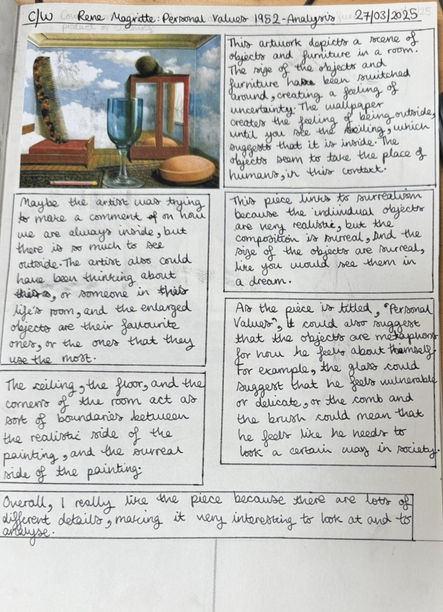 C/W Rene Magritte: Personal Values 1952 - Analysis 27/03/2025
This artwork depicts a scene of
objects and furniture in a room.
The size of the objects and
furniture have been switched
around, creating a feeling of
uncertainty. The wallpaper
creates the feeling of being outside,
until you see the ceiling, which
suggests that it is inside. The
objects seem to take the place of
humans, in this context.
Maybe the artist was trying
to make a comment on how
we are always inside, but
there is so much to see
outside. The artist also could
have been thinking about
, or someone in
life's room, and the enlarged
objects are their favourite
ones, or the ones that they
use the most.
This piece links to surrealism
because the individual objects
are very realistic, but the
composition is surreal, and the
size of the objects are surreal,
like you would see them in
a dream.
As the piece is titled, "Personal
Values", it could also suggest
that the objects are metaphors
for how he feels about himself.
For example, the glass could
suggest that he feels vulnerable
or delicate, or the comb and
the brush could mean that
he feels like he needs to
look a certain way in society.
The ceiling, the floor, and the
corners of the room act as
sort of boundaries between
the realistic side of the
painting, and the surreal
side of the painting.
Overall, I really like the piece because there are lots of
different details, making it very interesting to look at and to
analyse.